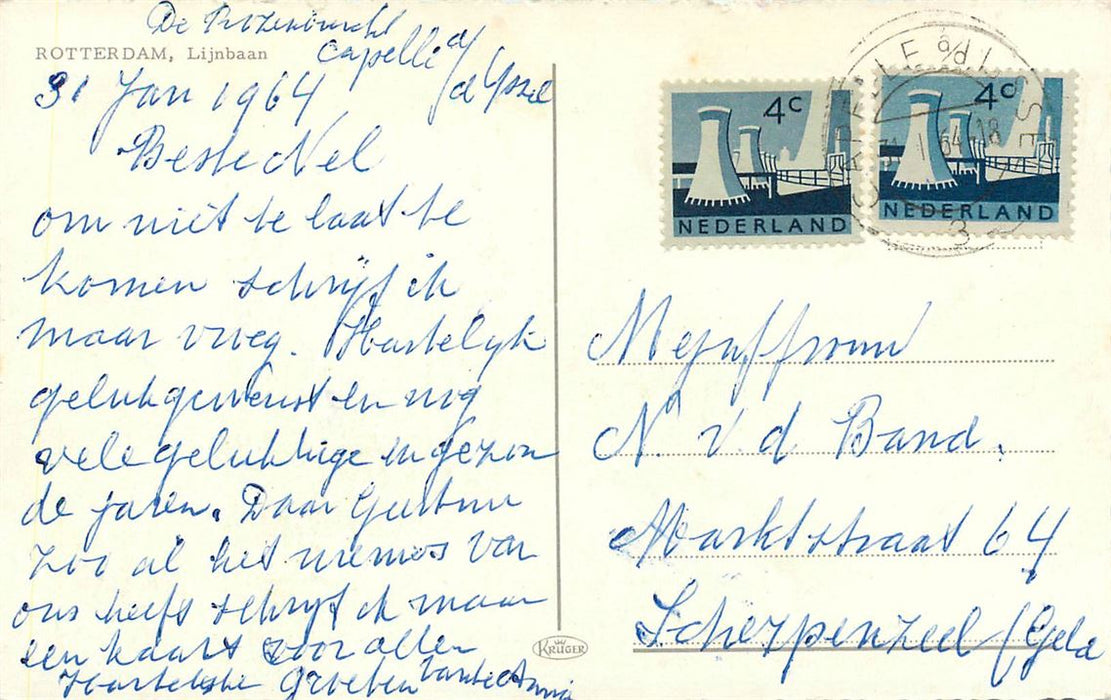 De Rozenburcht
ROTTERDAM, Lijnbaan
Capelle a/d Yssel
31 Jan 1964
Beste Nel
om niet te laat te
komen schrijf ik
maar vroeg. Hartelijk
gelukgewenst en nog
vele gelukkige en gezon
de jaren. Daar
zoo al het nieuws van
ons heeft schrijf ik maar
een kaart voor allen
Hartelijke Groeten Tante Annie
KRÜGER
4c
NEDERLAND
4c
NEDERLAND
CAPELLE a/d IJSSEL
31 I 64 -18
3
Mejuffrouw
N. v d Band.
Marktstraat 64
Scherpenzeel (Geld